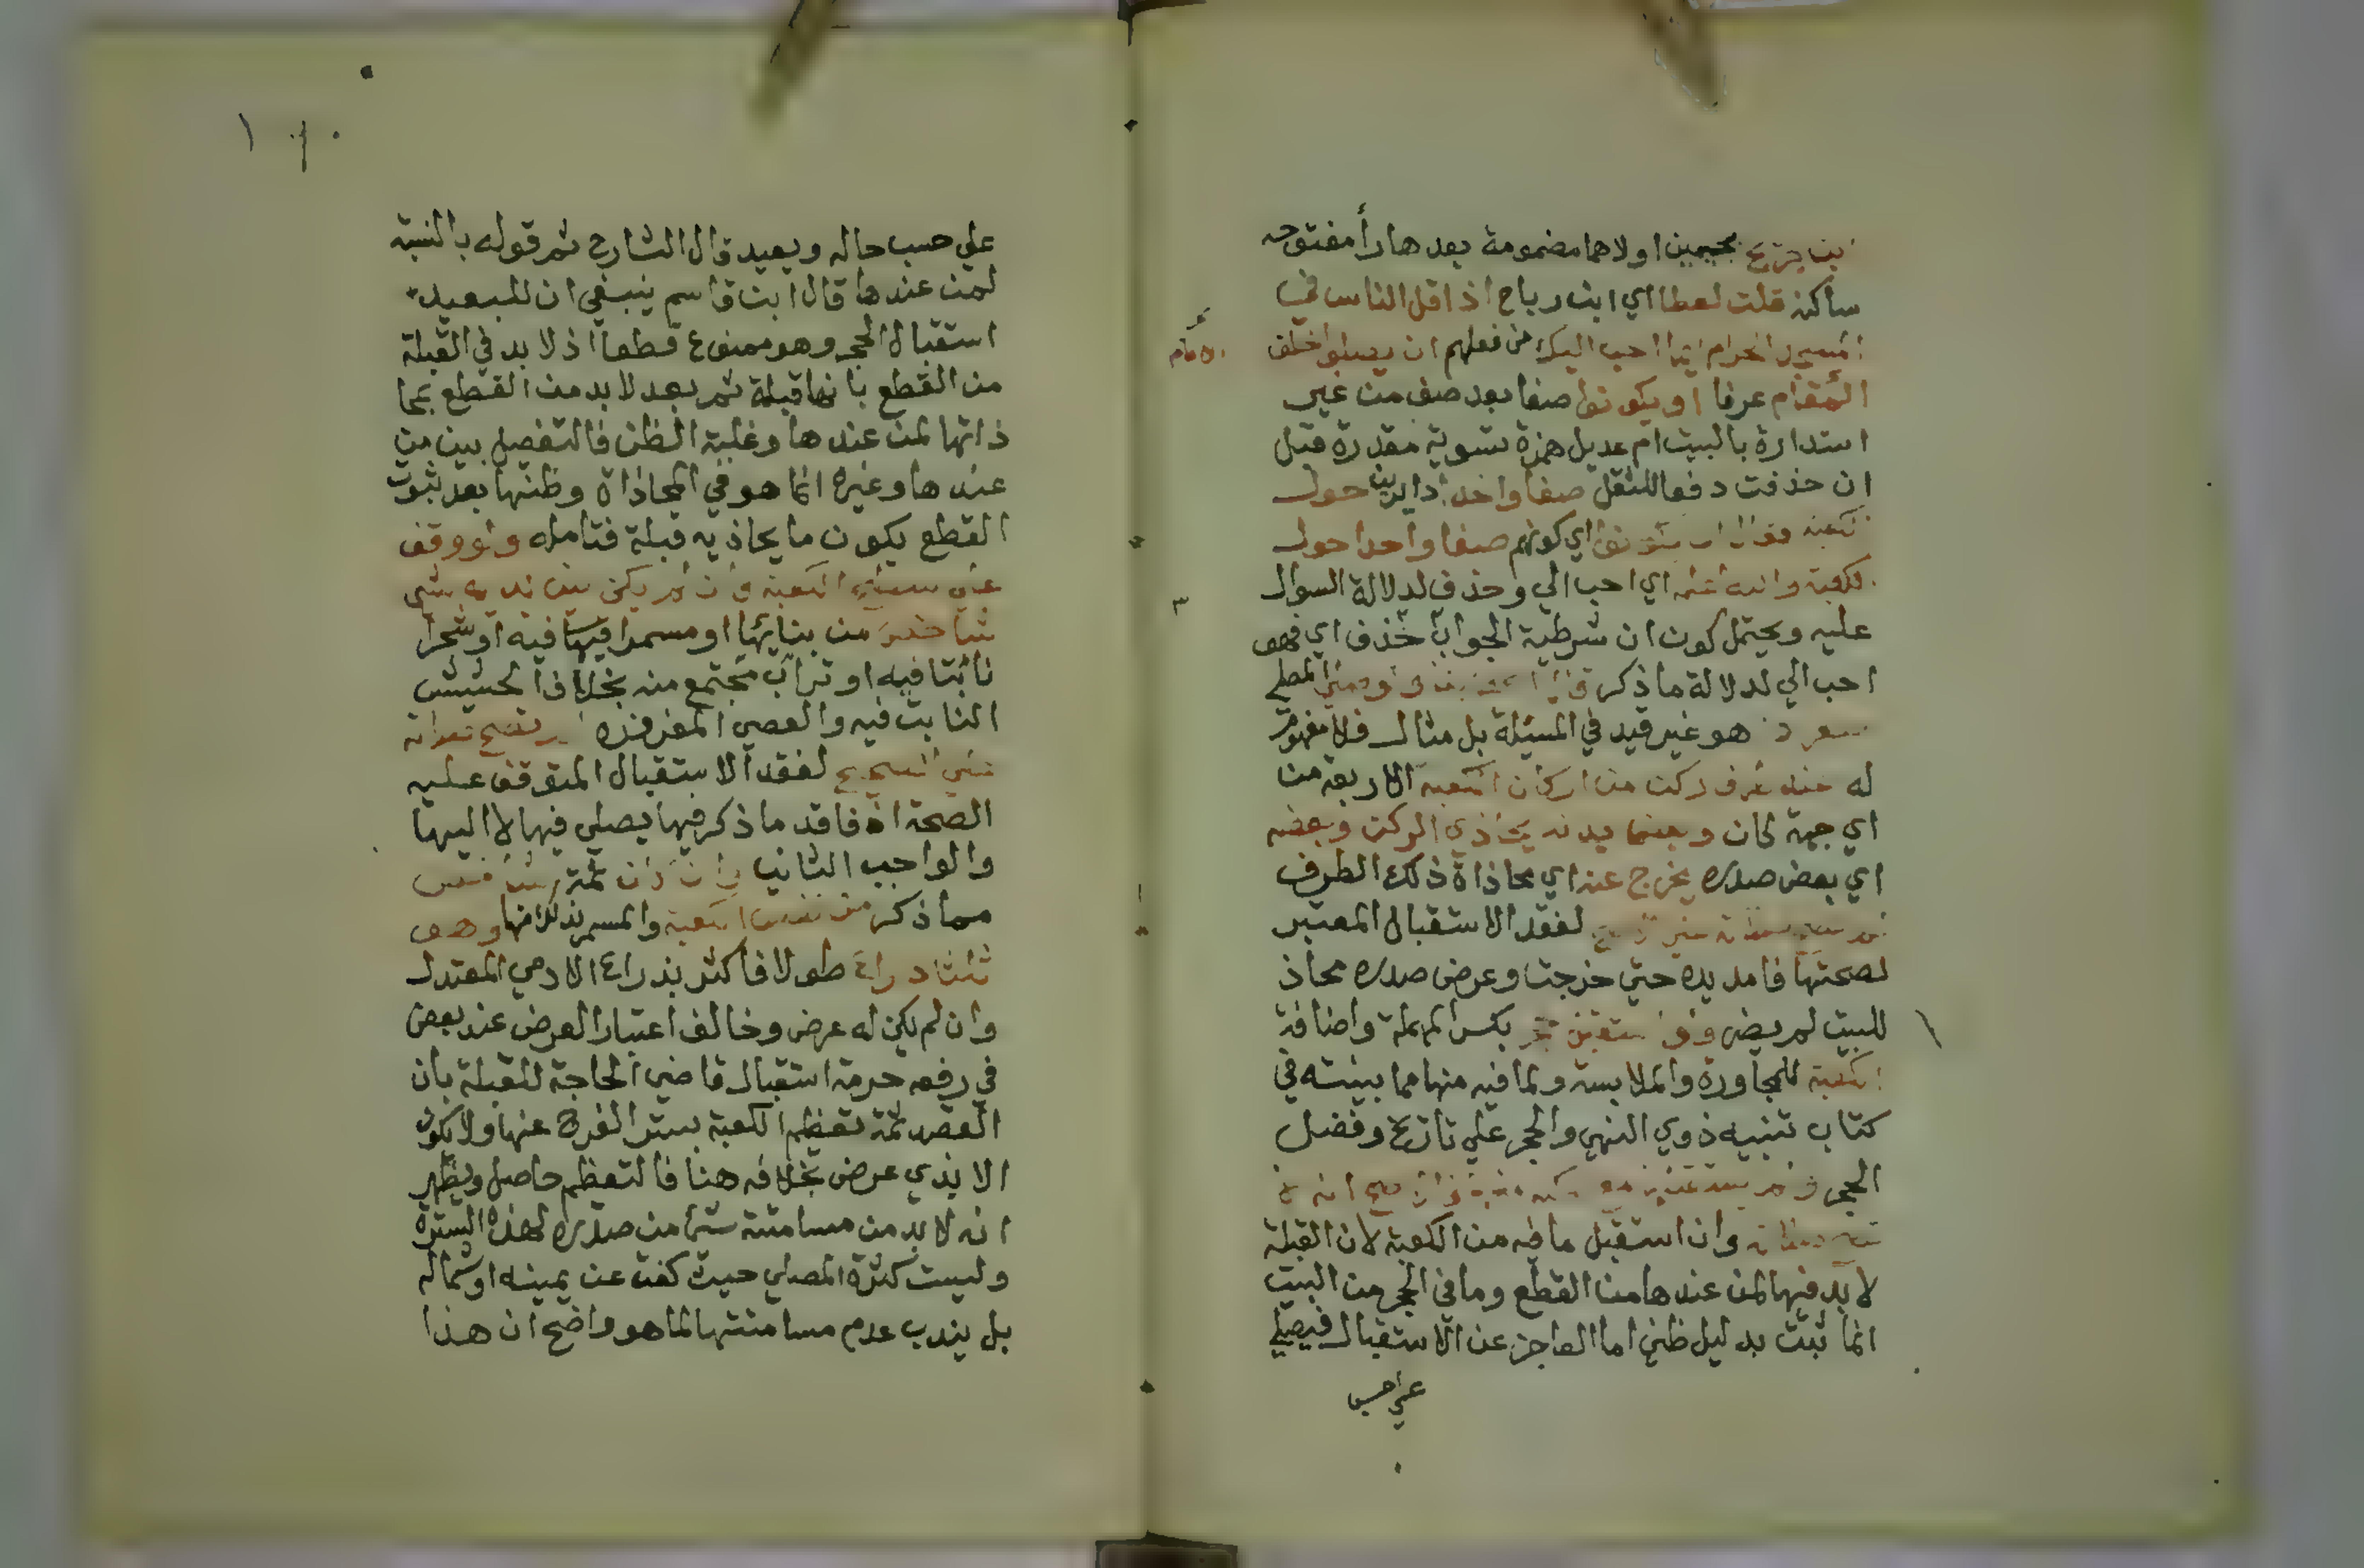 ابن جريج بجيمين اولاهما مضمومة بعدها رأ مفتوحه
ساكنه قلت لعطا اي ابن رباح اذا قل الناس في
المسجد الحرام ايما احب اليك من فعلهم ان يصلوا خلف
الامام
المقام عرفا او يكونوا صفا بعد صف من غير
استدارة بالبيت ام عديل همزة تسوية مقدرة قبل
ان حذفت دفعا للثقل صفا واحدا دايرين حول
الكعبة فقال ان يكونوا اي كونهم صفا واحدا حول
الكعبة والله اعلم اي احب الي وحذف لدلالة السوال
عليه ويحتمل كون ان شرطية الجواب حذف اي فهو
احب الي لدلالة ما ذكر قال المصنف ولو وقف المصلي
هو غير قيد في المسئلة بل مثال فلا مفهوم
له عند طرف ركن من اركان الكعبة الاربعة من
اي جهة كان وبعض بدنه يحاذي الركن وبعضه
اي بعض صدره يخرج عنه اي محاذاة ذلك الطرف
لفقد الاستقبال المعتبر
لصحتها فامد يده حتي خرجت وعرض صدره محاذ
للبيت لم يضر ولو استقبل حجر بكسر المهملة واضافة
الكعبة للمجاورة والملابسة ولما فيه منها مما بينته في
كتاب تنبيه ذوي النهي والحجر علي تاريخ وفضل
الحجر ولم يستقبل الكعبة فالاصح انه لا
تصح صلاته وان استقبل ما فيه من الكعبة لان القبلة
لا بد فيها لمن عندها من القطع وما في الحجر من البيت
انما ثبت بدليل ظني اما العاجز عن الاستقبال فيصلي
علي حسب
علي حسب حاله ويعيد قال الشارح ثم قوله بالنسبة
لمن عندها قال ابن قاسم ينبغي ان للبعيد
استقبال الحجر وهو ممنوع قطعا اذ لا بد في القبلة
من القطع بانها قبلة ثم بعد لا بد من القطع بمحا
ذاتها لمن عندها وغلبة الظن فالتفصيل بين من
عندها وغيره انما هو في المحاذاة وظنها بعد ثبوت
القطع بكون ما يحاذيه قبلة فتامله ولو وقف
علي سطح الكعبة فان لم يكن بين يديه شي
شاخص من بنائها او مسمرا فيها فيه او شجرا
نابتا فيه او تراب مجتمع منه بخلاف الحشيش
النابت فيه والعصي المغروزة لم تصح صلاته
علي الصحيح لفقد الاستقبال المتوقف عليه
الصحة اذ فاقد ما ذكر فيها يصلي فيها لا اليها
والواجب الثاني وان كان ثمة شاخص
مما ذكر من نفس الكعبة والمسمر بذلك منها وهو
ثلثا ذراع طولا فاكثر بذراع الادمي المعتدل
وان لم يكن له عرض وخالف اعتبار العرض عند بعض
في رفعه حرمة استقبال قاضي الحاجة للقبلة بان
القصد ثمة تعظيم الكعبة بستر الفرج عنها ولا يكون
الا بذي عرض بخلافه هنا فالتعظيم حاصل ويظهر
انه لا بد من مسامتة شيا من صدره لهذه السترة
وليست كسترة المصلي حيث كفت عن يمينه او شماله
بل يندب عدم مسامتتها لما هو واضح ان هذا